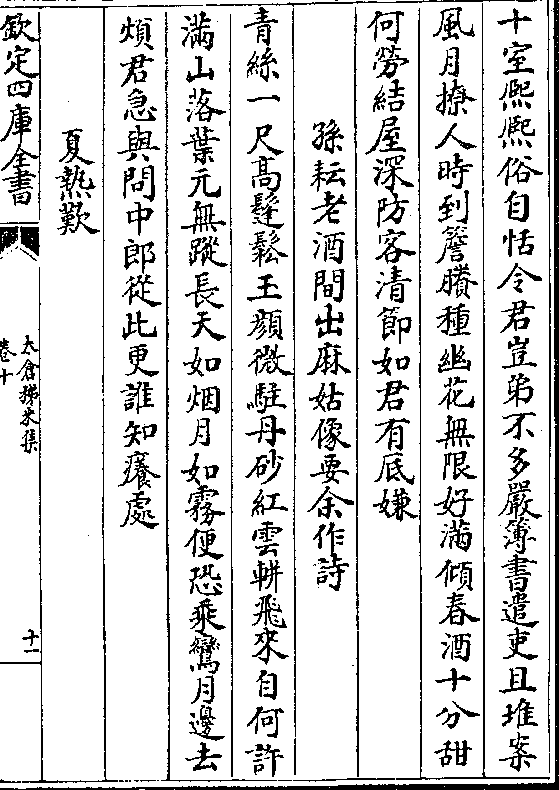 十室熙熙俗自恬令君豈弟不多嚴簿書遣吏且堆案
風月撩人時到簷賸種幽花無限好滿傾春酒十分甜
何勞結屋深防客清節如君有底嫌
孫耘老酒間出麻姑像要余作詩
青絲一尺高鬔鬆玉顔微駐丹砂紅雲輧飛來自何許
滿山落葉元無蹤長天如烟月如霧便恐乘鸞月邊去
煩君急與問中郎從此更誰知癢處
夏熱歎
欽定四庫全書
太倉稊米集
卷十
十一